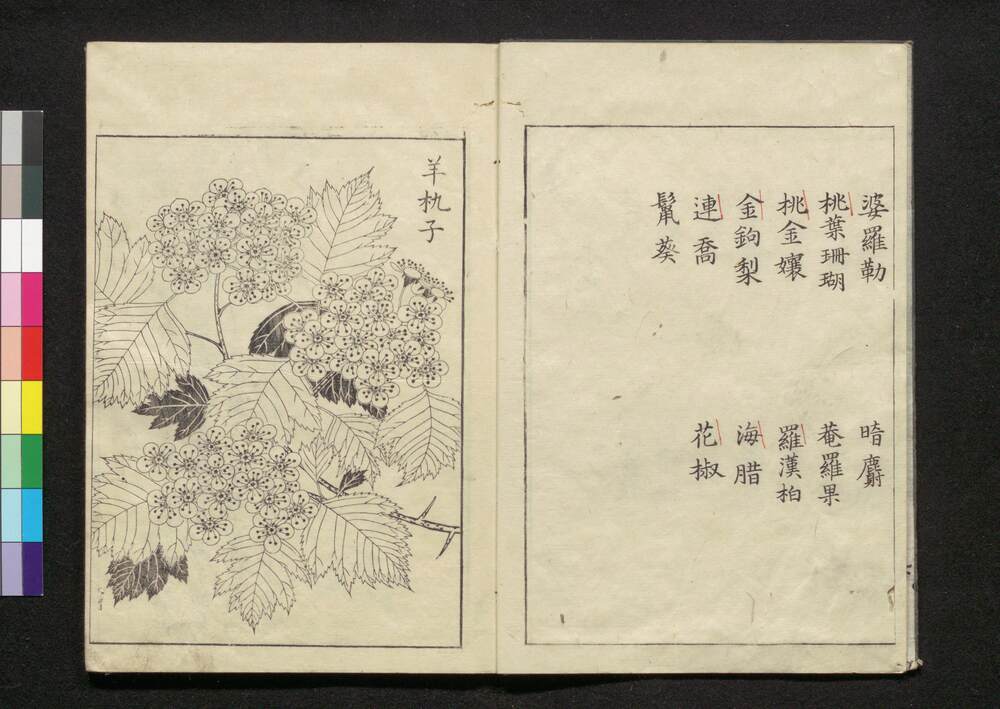 婆羅勒
暗麝
桃葉珊瑚
菴羅果
桃金孃
羅漢柏
金鉤梨
海腊
連喬
花椒
鬣葵
羊朹子